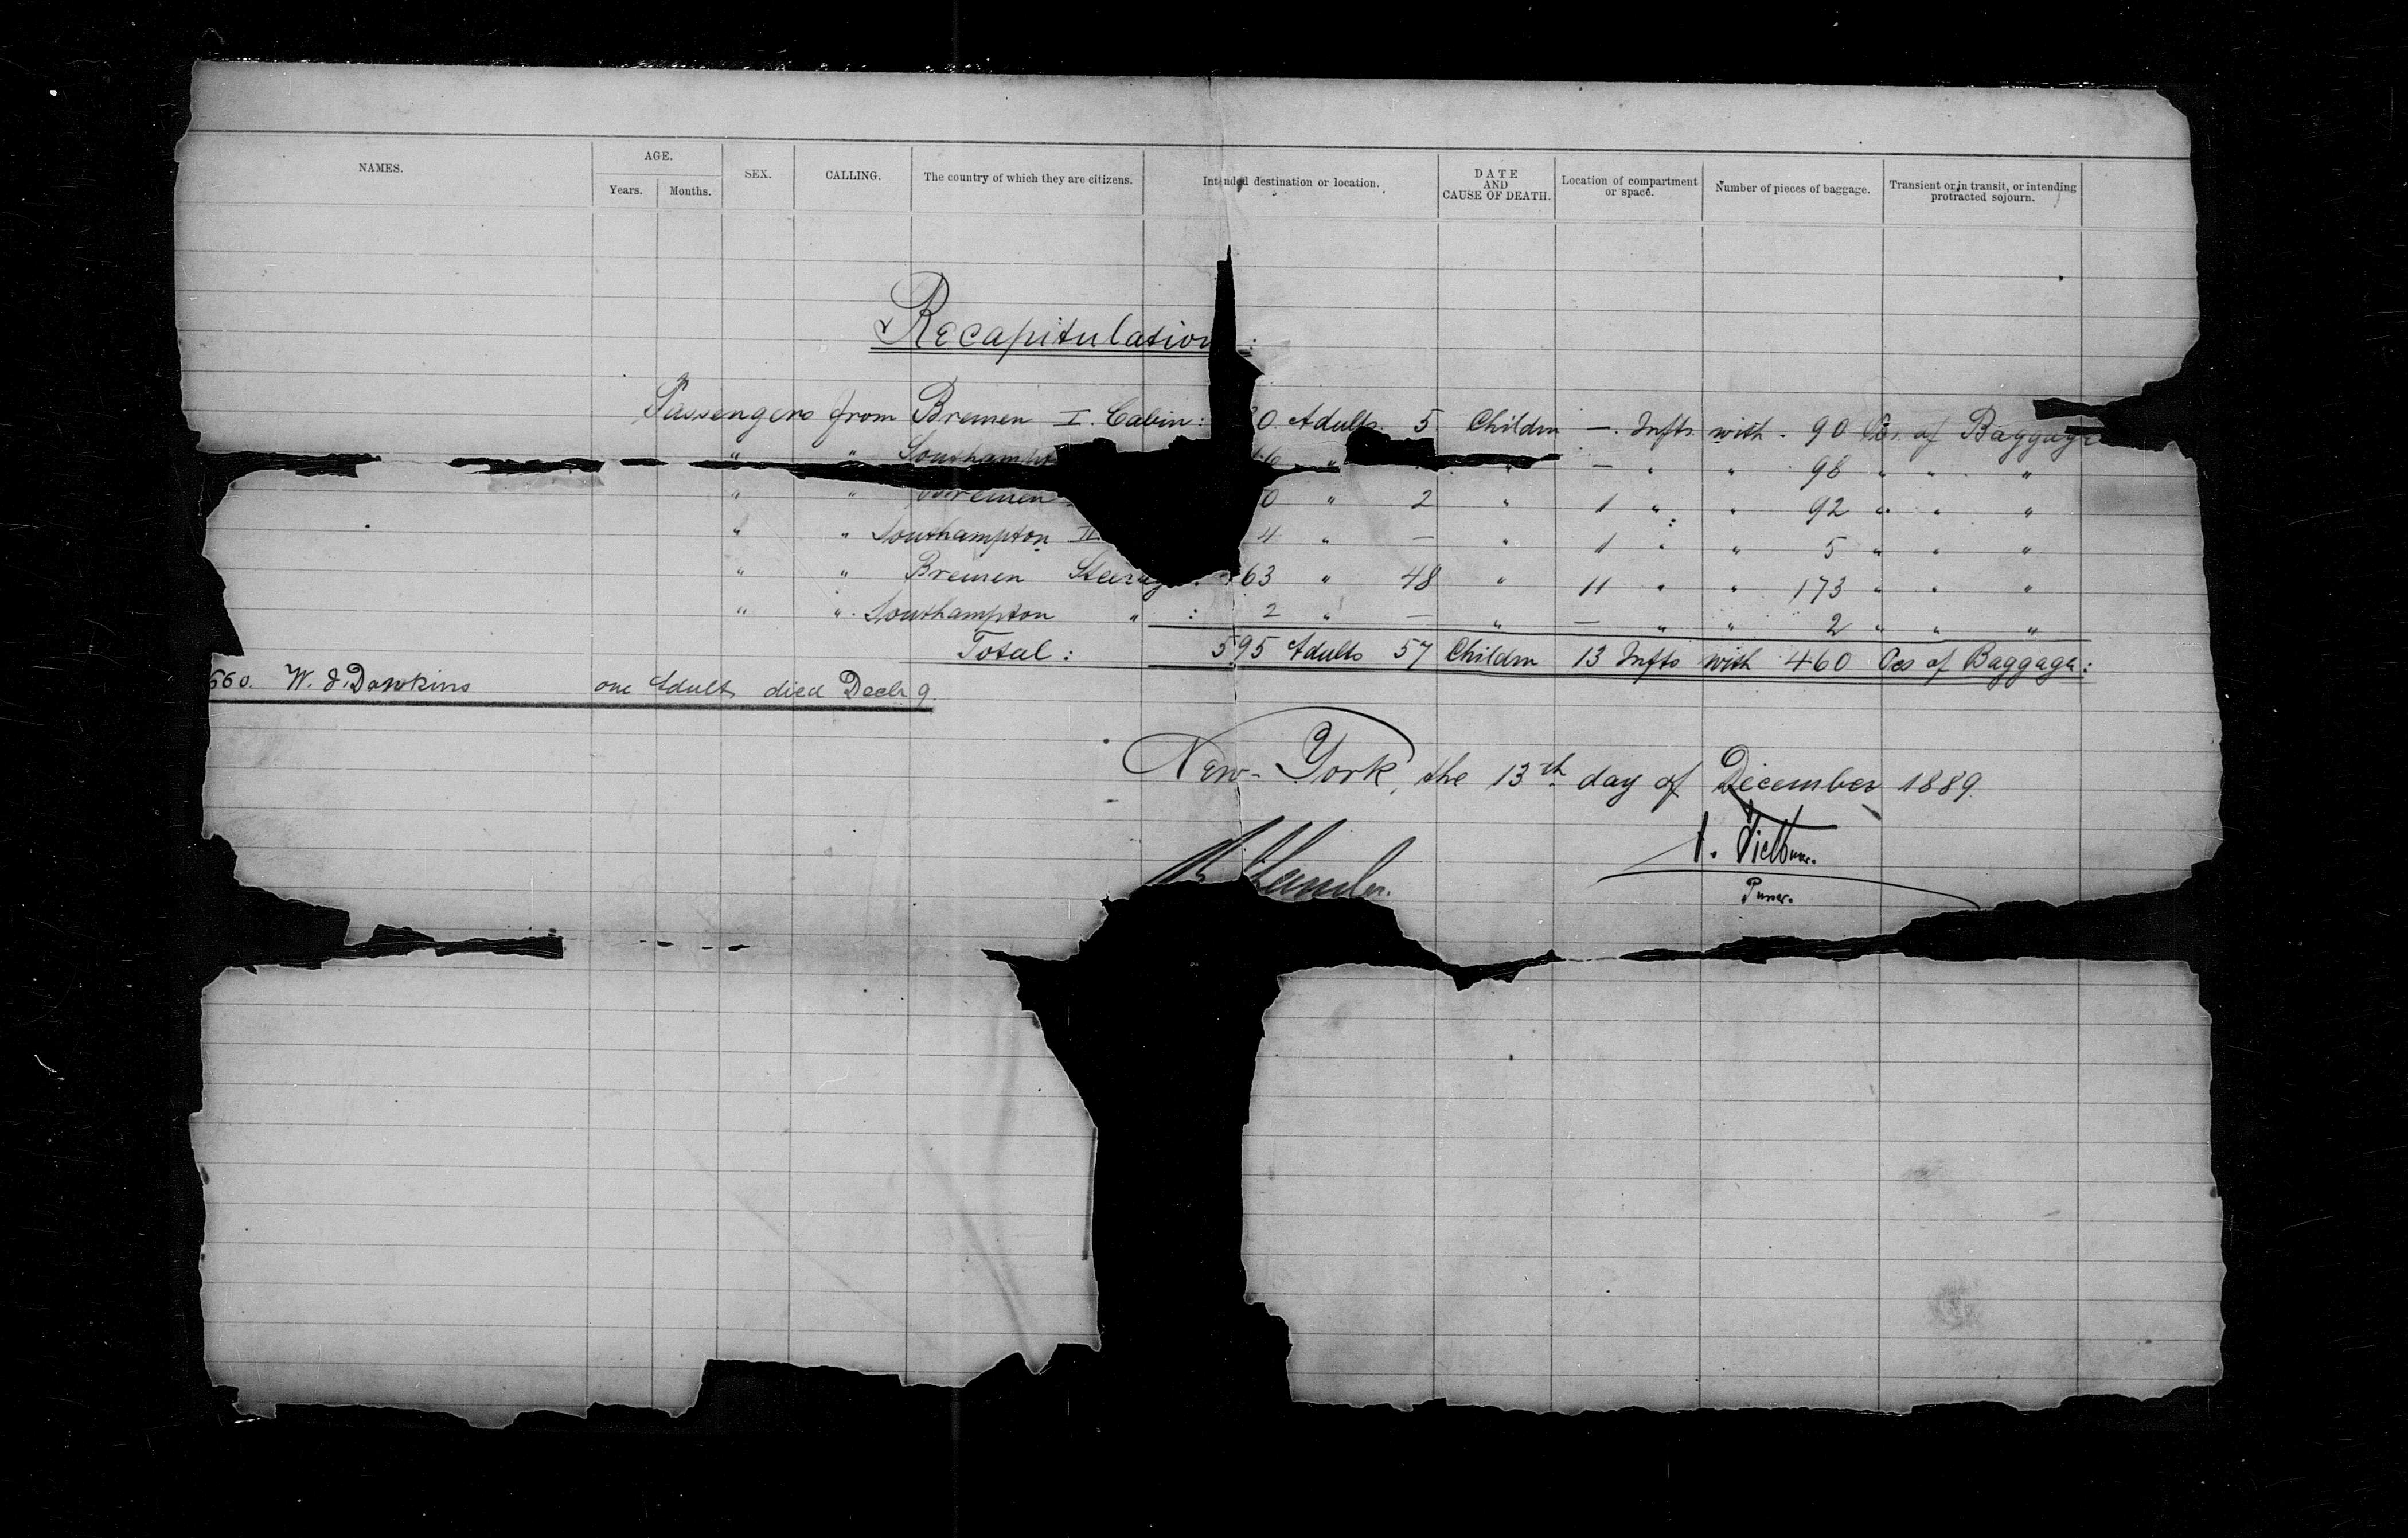 NAMES. AGE. SEX. CALLING. The country of which they are citizens. Intended destination or location. DATE AND CAUSE OF DEATH. Location of compartment or space. Number of pieces of baggage. Transient or in transit, or intending protracted sojourn.
Years. Months.
Recapitulation :
Passengers from Bremen I. Cabin : 0 Adults 5 Childrn — Infts. with 90 Pcs. of Baggage
" " Southampt 6 " " — " " 98 " " "
" " Bremen 0 " 2 " 1 " " 92 " " "
" " Southampton II 4 " — " 1 " " 5 " " "
" " Bremen Steerag 63 " 48 " 11 " " 173 " " "
" " Southampton " : 2 " — " — " " 2 " " "
Total : 595 Adults 57 Childrn 13 Infts with 460 Pcs of Baggage :
660. W. J. Dawkins one Adult died Decbr 9.
New-York, the 13th day of December 1889.
Purser.